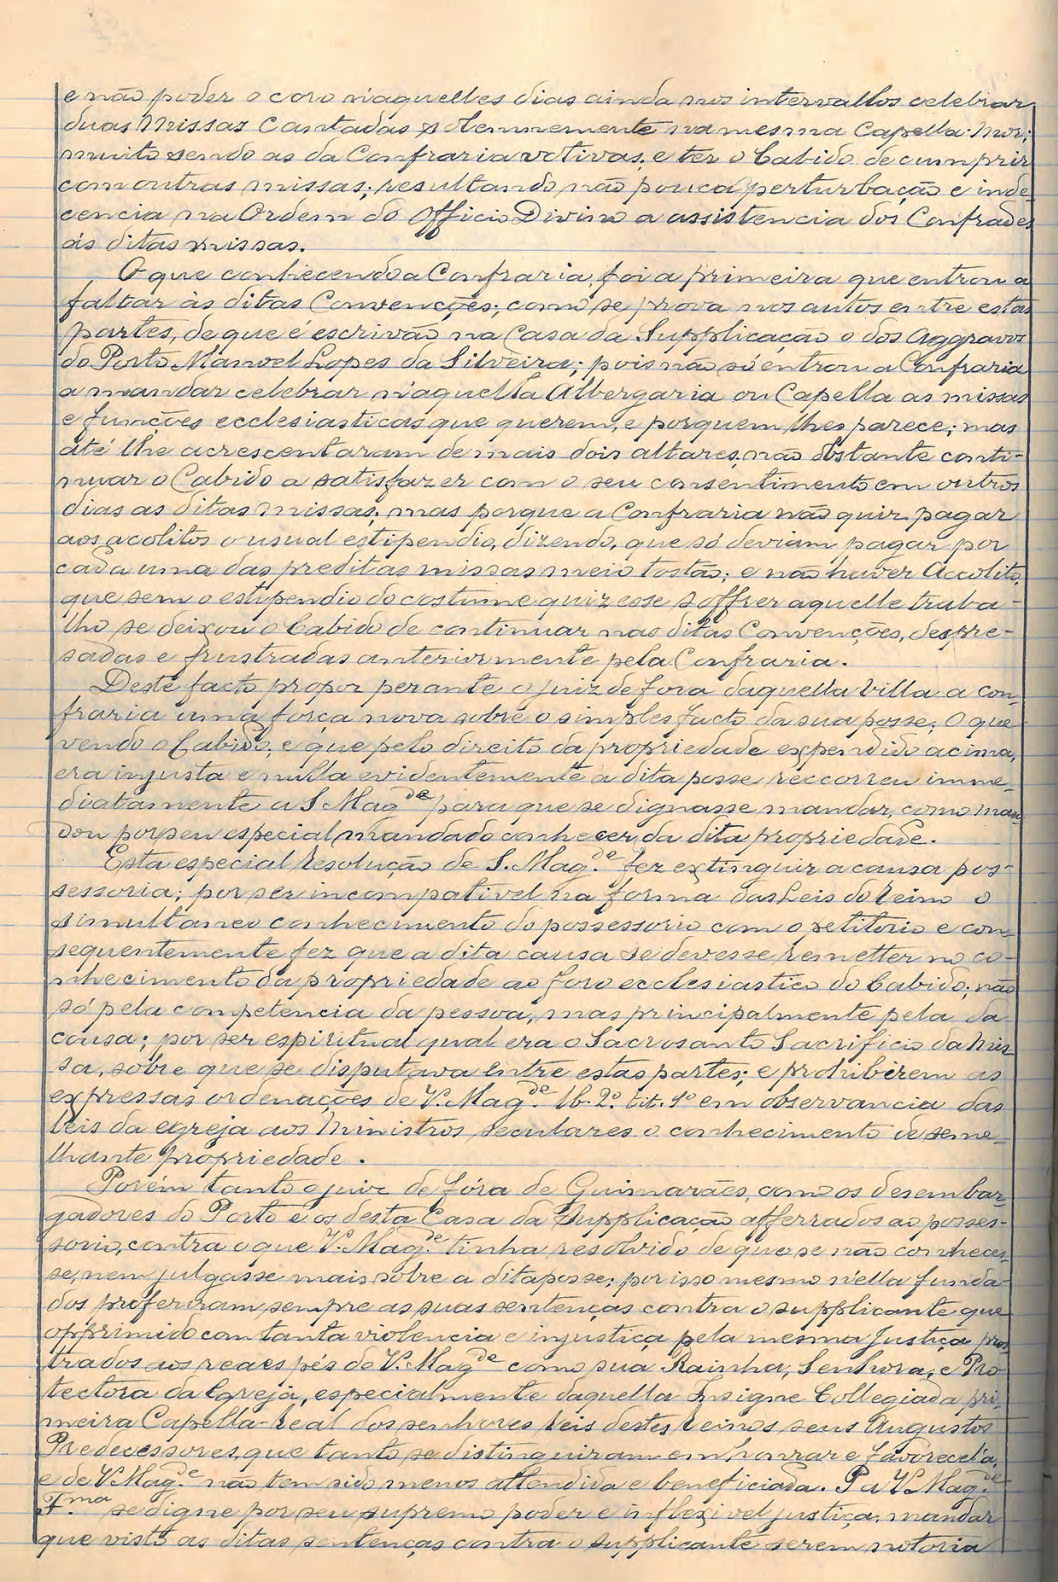 e não poder o coro n'aquelles dias ainda nos intervallos celebrar
duas Missas Cantadas solemnemente na mesma Capella-Mor;
muito sendo as da Confraria votivas, e ter o Cabido de cumprir
com outras missas; resultando não pouca perturbação e inde-
cencia na Ordem do Officio Divino a assistencia dos Confrades
ás ditas missas.
O que conhecendo a Confraria, foi a primeira que entrou a
faltar às ditas Convenções; como se prova nos autos entre estas
partes, de que é escrivão na Casa da Supplicação o dos Aggravos
do Porto Manoel Lopes da Silveira; pois não só entrou a Confraria
a mandar celebrar n'aquella Albergaria ou Capella as missas
e funções ecclesiasticas que querem, e porquem lhes parece; mas
até lhe acrescentaram de mais dois altares, não obstante conti-
nuar o Cabido a satisfazer com o seu consentimento em outros
dias as ditas missas, mas porque a Confraria não quiz pagar
aos acolitos o usual estipendio, dizendo, que só deviam pagar por
cada uma das preditas missas meio tostão; e não haver Accolito,
que sem o estipendio do costume quizesse soffrer aquelle traba-
lho se deixou o Cabido de continuar nas ditas Convenções, despre-
sadas e frustradas anteriormente pela Confraria.
Deste facto propoz perante o juiz de fora daquella Villa a con-
fraria uma força nova sobre o simples facto da sua posse; O que
vendo o Cabido, e que pelo direito da propriedade expendido acima,
era injusta e nulla evidentemente a dita posse reccorreu imme-
diatamente a S Mag.de para que se dignasse mandar, como man-
dou por seu especial mandado conhecer da dita propriedade.
Esta especial Resolução de S. Mag.de fez extinguir a causa pos-
sessoria; por ser incompativel na forma das Leis do Reino o
simultaneo conhecimento do possessorio com o petitorio e con-
sequentemente fez que a dita causa se devesse remetter no co-
nhecimento da propriedade ao foro ecclesiastico do Cabido; não
só pela competencia da pessoa, mas principalmente pela da
cousa; por ser espiritual qual era o Sacrosanto Sacrificio da Mis-
sa, sobre que se disputava entre estas partes; e prohiberem as
expressas ordenações de V. Mag.de lb. 2º. tit. 1º em observancia das
Leis da egreja aos Ministros seculares o conhecimento de seme-
lhante propriedade.
Porém tanto o juiz de fóra de Guimarães, como os desembar-
gadores do Porto e os desta Casa da Supplicação afferrados ao posses-
sorio, contra o que V. Mag.de tinha resolvido de que se não conheces-
se, nem julgasse mais sobre a dita posse; por isso mesmo n'ella funda-
dos proferiram sempre as suas sentenças contra o supplicante que
opprimido com tanta violencia e injustiça pela mesma Justiça, pros-
trados aos reaes pés de V. Mag.de como sua Rainha, Senhora, e Pro-
tectora da Egreja, especialmente daquella Insigne Collegiada pri-
meira Capella-Real dos senhores Reis destes reinos seus Augustos
Predecessores, que tanto se distinguiram em honrar e favorecel'a,
e de V. Mag.de não tem sido menos attendida e beneficiada. P a V. Mag.de
F.ma se digne por seu supremo poder e inflexivel justiça, mandar
que visto as ditas sentenças contra o supplicante serem notoria